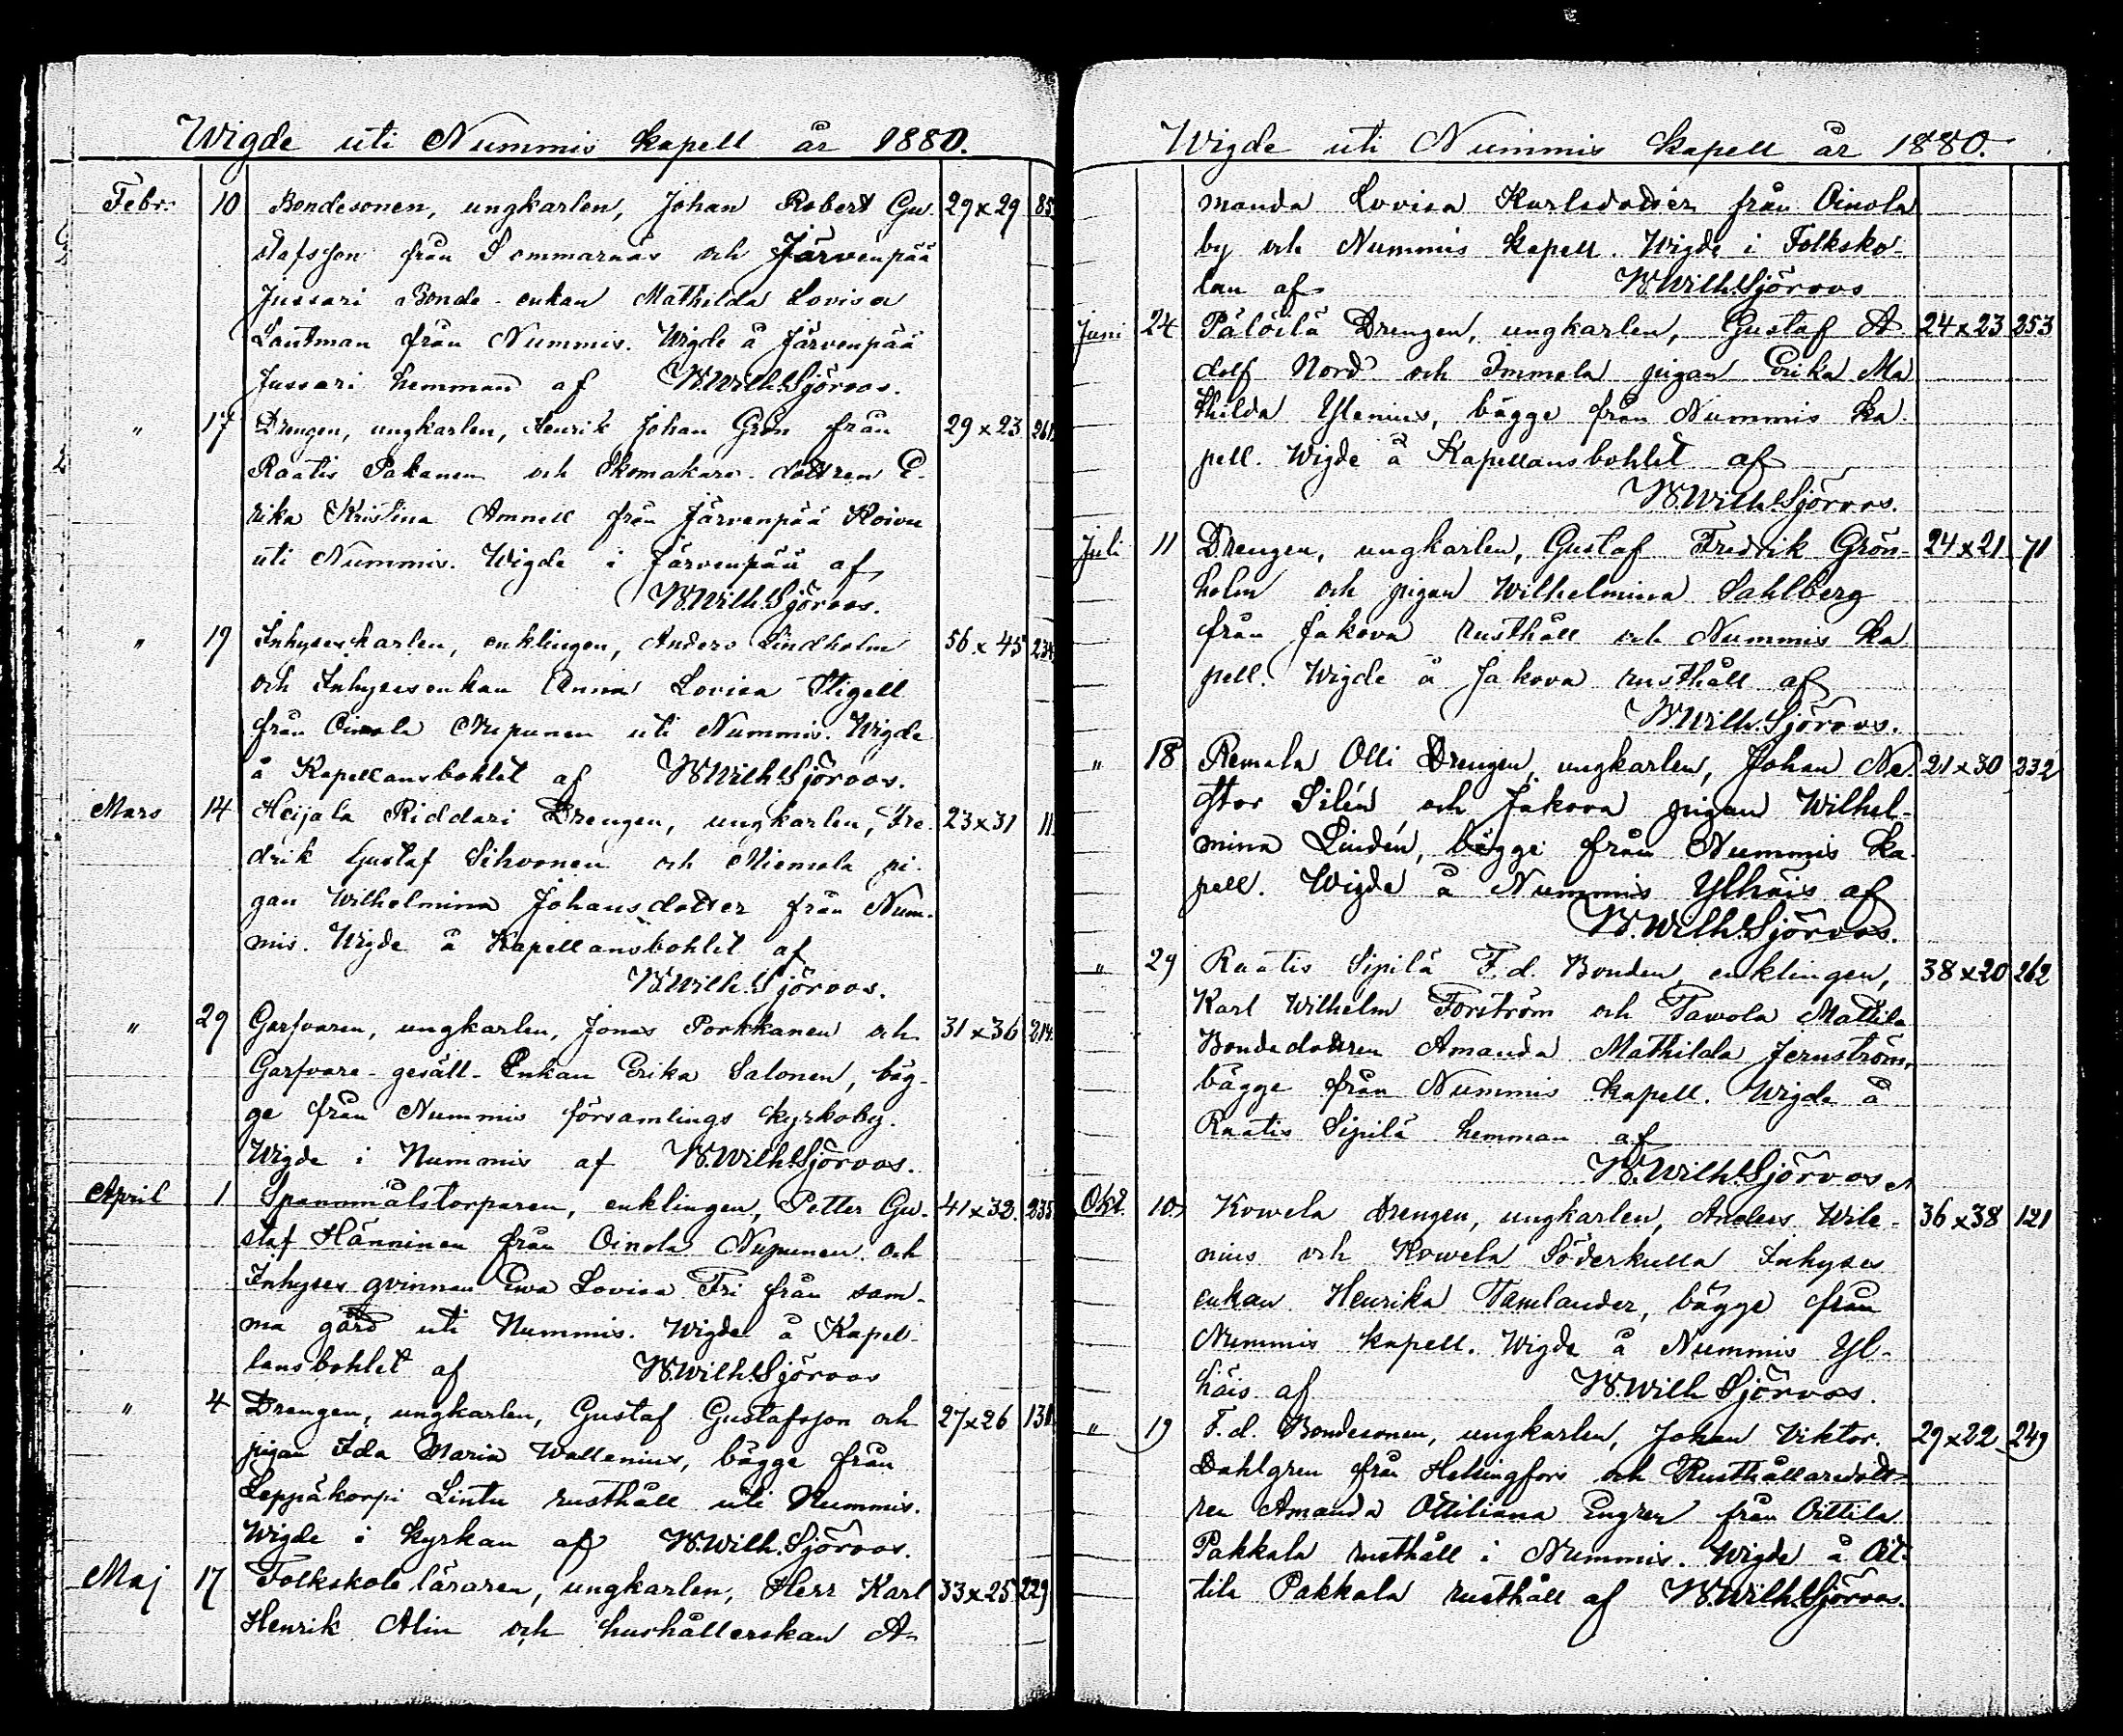 Wigde uti Nummis kapell år 1880.
Febr. 10 Bondesonen, ungkarlen, Johan Robert Gu- 29x29 85
stafsson från Sommarnäs och Järvenpää
Jussari Bonde-enkan Mathilda Lovisa
Lautman från Nummis. Wigde å Järvenpää
Jussari hemman af W. Wilh. Sjöroos.
" 17 Drengen, ungkarlen, Henrik Johan Grön från 29x23 261
Raatis Pakanen och Skomakare-dottren E-
rika Kristina Amnell från Järvenpää Koivu
uti Nummis. Wigde i Järvenpää af
W. Wilh. Sjöroos.
" 19 Inhyseskarlen, enklingen, Anders Lindholm 56x45 234
och Inhysesenkan Anna Lovisa Stigell
från Oinola Nupunen uti Nummis. Wigde
å Kapellansbohlet af W. Wilh. Sjöroos.
Mars 14 Heijala Riddari Drengen, ungkarlen, Fre- 23x31 11
drik Gustaf Sihvonen och Niemela pi-
gan Wilhelmina Johansdotter från Num-
mis. Wigde å Kapellansbohlet af
W. Wilh. Sjöroos.
" 29 Garfvaren, ungkarlen, Jonas Porkkanen och 31x36 214
Garfvare-gesäll-Enkan Erika Salonen, bäg-
ge från Nummis församlings kyrkoby.
Wigde i Nummis af W. Wilh. Sjöroos.
April 1 Spannmålstorparen, enklingen, Petter Gu- 41x32 235
staf Hänninen från Oinola Nupunen och
Inhyses qvinnan Ewa Lovisa Fri från sam-
ma gård uti Nummis. Wigde å Kapel-
lansbohlet af W. Wilh. Sjöroos
" 4 Drengen, ungkarlen, Gustaf Gustafsson och 27x26 130
pigan Ida Maria Wallenius, bägge från
Leppäkorpi Lintu rusthåll uti Nummis.
Wigde i kyrkan af W. Wilh. Sjöroos.
Maj 17 Folkskoleläraren, ungkarlen, Herr Karl 33x25 229
Henrik Alin och hushållerskan A-
Wigde uti Nummis kapell år 1880.
manda Lovisa Karlsdotter från Oinola
by och Nummis kapell. Wigde i Folksko-
lan af W. Wilh. Sjöroos
Juni 24 Pälöilä Drengen, ungkarlen, Gustaf A- 24x23 253
dolf Nord och Immola pigan Erika Ma
thilda Ylenius, bägge från Nummis ka-
pell. Wigde å Kapellansbohlet af
W. Wilh. Sjöroos.
Juli 11 Drengen, ungkarlen, Gustaf Fredrik Grön- 24x21 71
holm och pigan Wilhelmina Sahlberg
från Jakova rusthåll och Nummis ka
pell. Wigde å Jakova rusthåll af
W. Wilh. Sjöroos.
" 18 Remala Olli Drengen, ungkarlen, Johan Ne- 21x30 232
stor Silén och Jakova pigan Wilhel-
mina Lindén, bägge från Nummis ka-
pell. Wigde å Nummis Ylhäis af
W. Wilh. Sjöroos.
" 29 Raatis Sipilä F. d. Bonden, enklingen, 38x20 262
Karl Wilhelm Forström och Tavola Mattila
Bondedottren Amanda Mathilda Jernström,
bägge från Nummis kapell. Wigde å
Raatis Sipilä hemman af
W. Wilh. Sjöroos
Okt. 10 Kowela Drengen, ungkarlen, Anders Wile- 36x38 121
nius och Kowela Söderkulla Inhyses
enkan Henrika Tamlander, bägge från
Nummis kapell. Wigde å Nummis Yl-
häis af W. Wilh Sjöroos.
" 19 F. d. Bondesonen, ungkarlen, Johan Viktor 29x22 249
Dahlgren från Helsingfors och Rusthållaredott-
ren Amanda Ottiliana Engren från Oittila
Pakkala rusthåll i Nummis. Wigde å Oit-
tila Pakkala rusthåll af W. Wilh. Sjöroos.